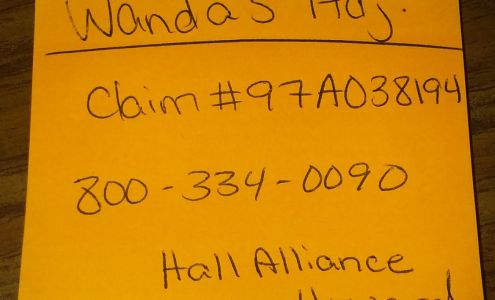 Wanda's Adj.
Claim #97A038194
800-334-0090
Hall Alliance